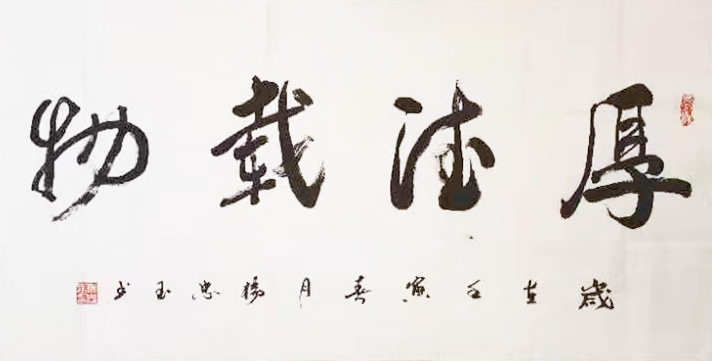 厚德载物
歲在壬寅春月楊忠玉书